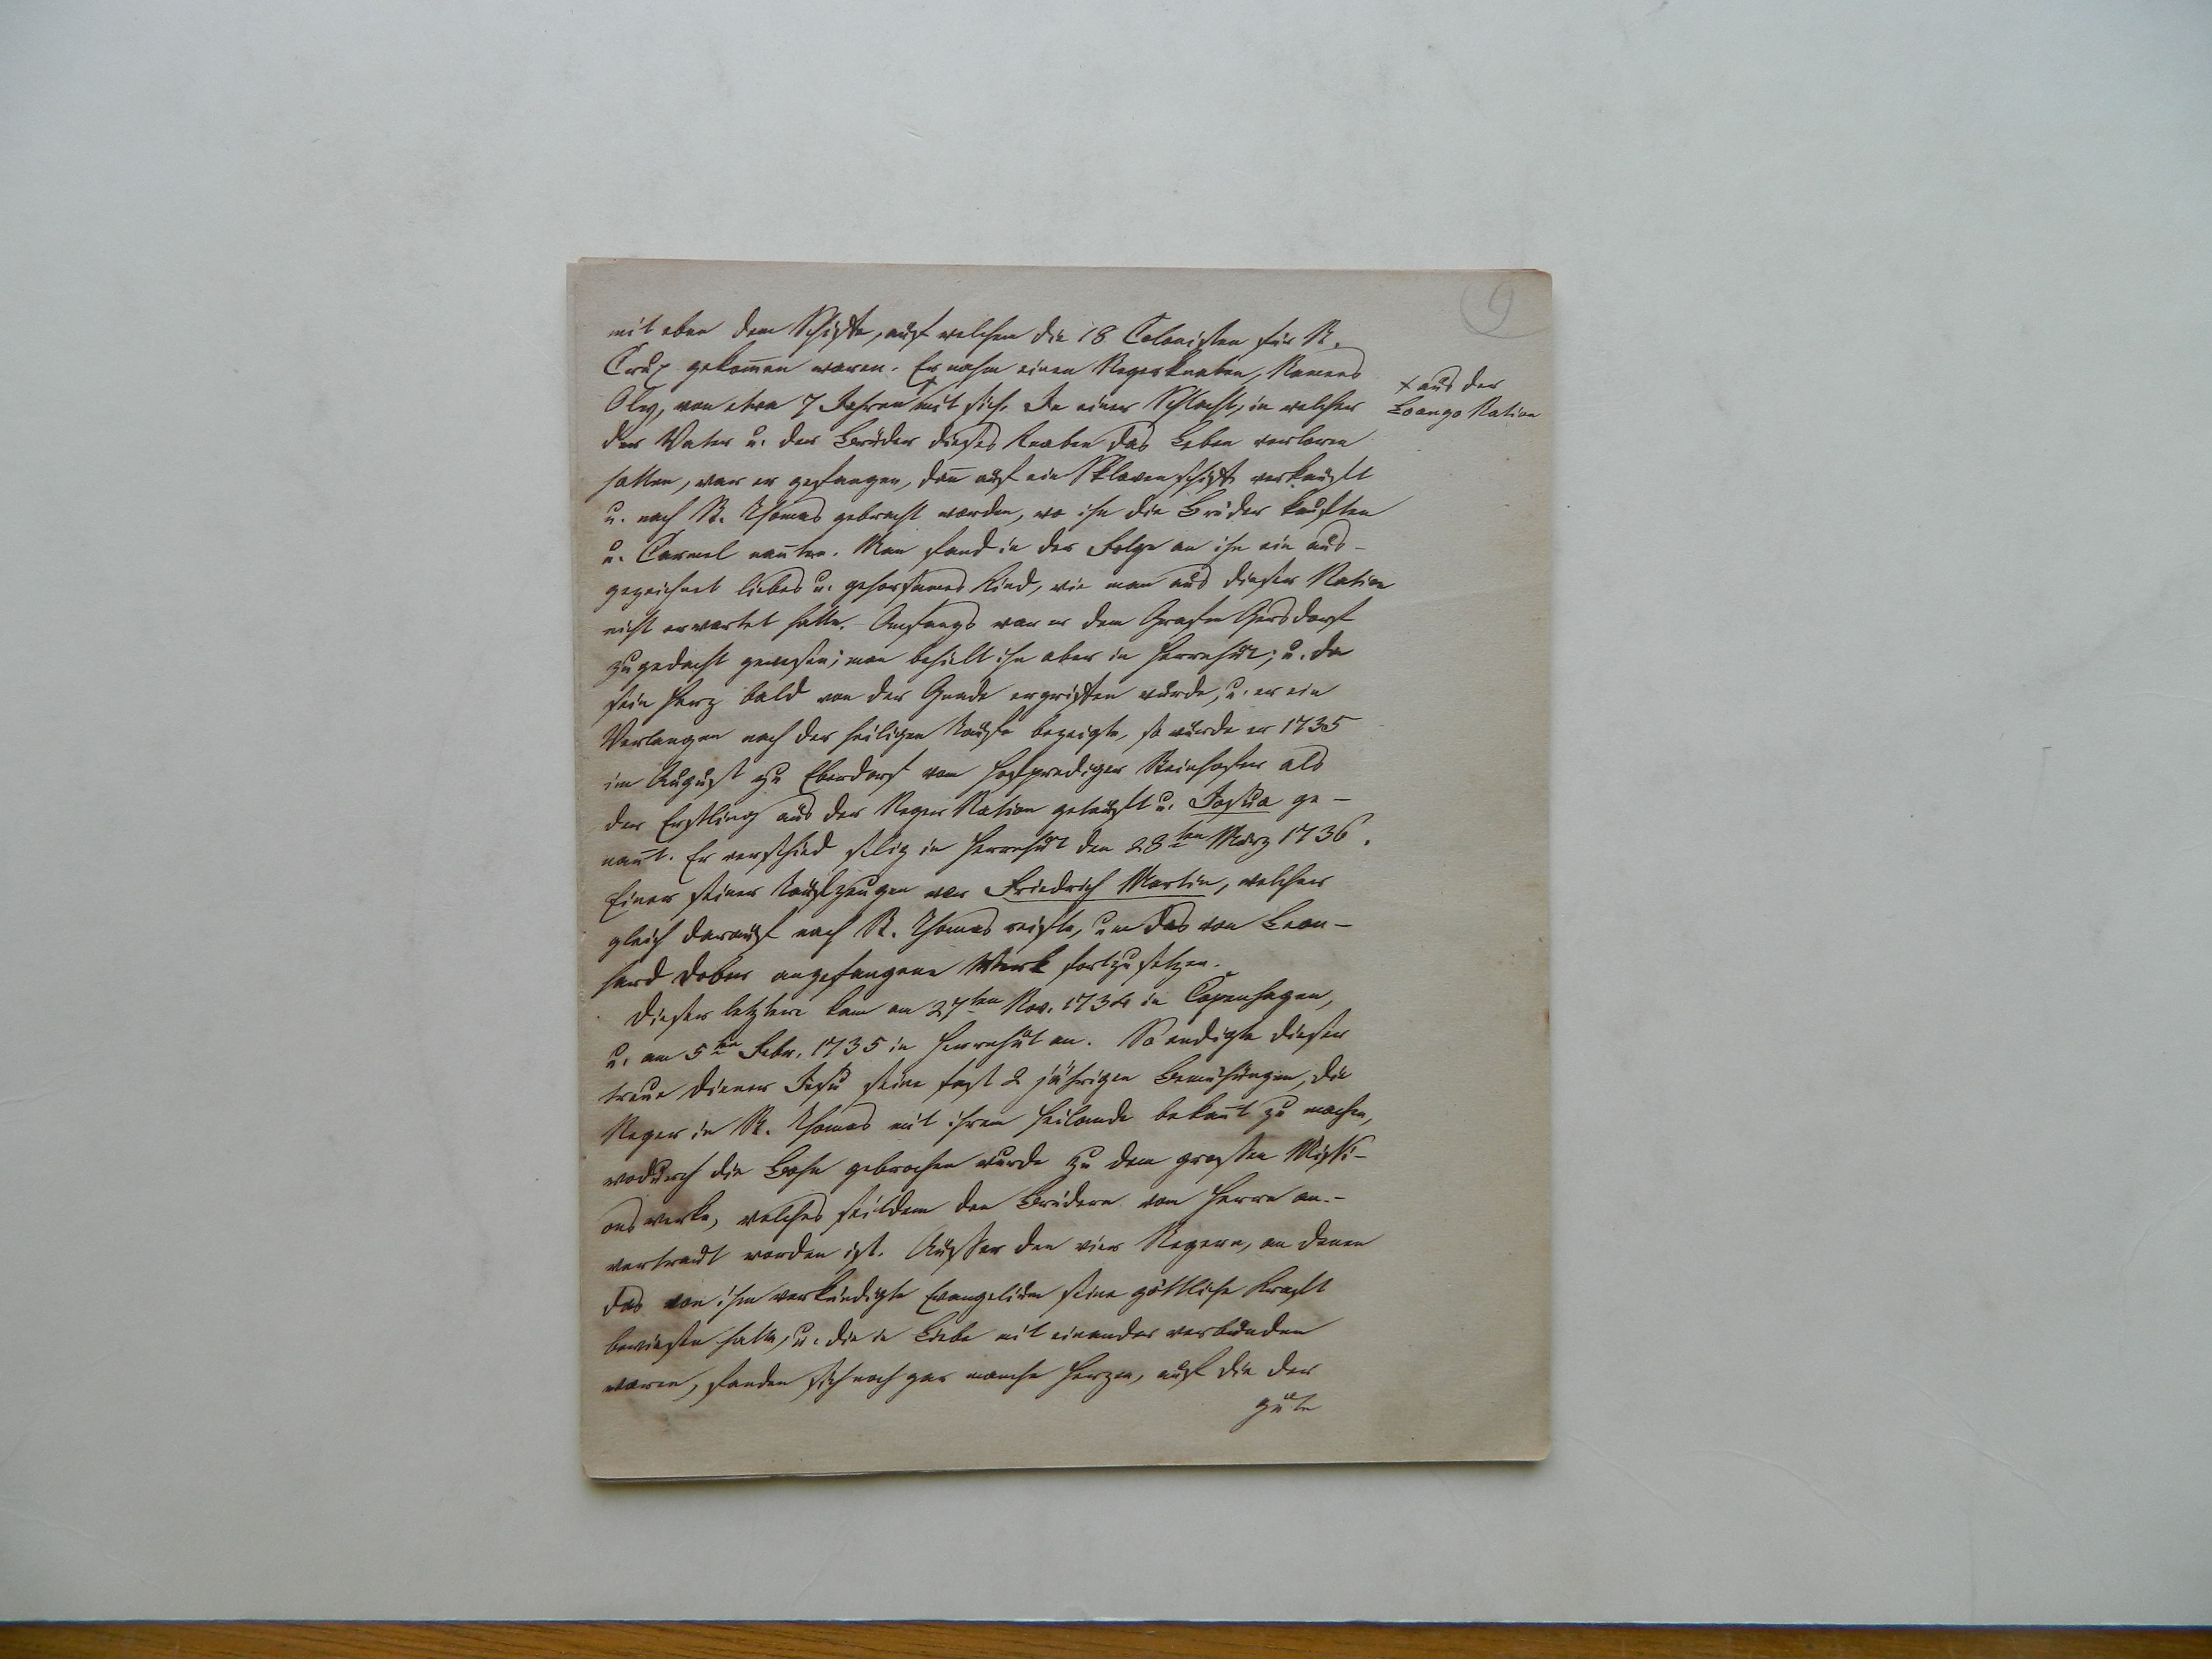 9
mit eben dem Schiffe, auf welchem die 18 Colonisten für St.
Crux gekom̅en waren. Er nahm einen Negerknaben, Namens
Oly, von etwa 7 Jahren + mit sich. In einer Schlacht, in welcher
+ aus der
Loango Nation
der Vater u. der Bruder dieses Knaben das Leben verloren
hatten, war er gefangen, dan̅ auf ein Sklavenschiff verkauft
u. nach St. Thomas gebracht worden, wo ihn die Brüder kauften
u. Carmel nan̅ten. Man fand in der Folge an ihm ein aus-
gezeichnet liebes u. gehorsames Kind, wie man aus dieser Nation
nicht erwartet hatte. Anfangs war er dem Grafen Gersdorf
zugedacht gewesen; man behielt ihn aber in Herrnhut; u. da
sein Herz bald von der Gnade ergriffen wurde, u. er ein
Verlangen nach der heiligen Taufe bezeigte, so wurde er 1735
im August zu Ebersdorf vom Hofprediger Steinhofer als
der Erstling aus der Neger Nation getauft u. Josua ge-
nan̅t. Er verschied selig in Herrnhut den 28ten März 1736.
Einer seiner Taufzeugen war Friedrich Martin, welcher
gleich darauf nach St. Thomas reiste, um das von Leon-
hard Dober angefangene Werk fortzusetzen.
Dieser letztere kam am 27ten Nov. 1734 in Copenhagen,
u. am 5ten Febr. 1735 in Herrnhut an. So endigte dieser
treue Diener Jesu seine fast 2 jährigen Bemühungen, die
Neger in St. Thomas mit ihrem Heilande bekan̅t zu machen,
wodurch die Bahn gebrochen wurde zu dem grossen Missi-
onswerke, welches seitdem den Brüdern vom Herrn an-
vertraut worden ist. Ausser den vier Negern, an denen
das von ihm verkündigte Evangelium seine göttliche Kraft
bewiesen hatte, u. die in Liebe mit einander verbunden
waren, fanden sich noch gar manche Herzen, auf die der
gute